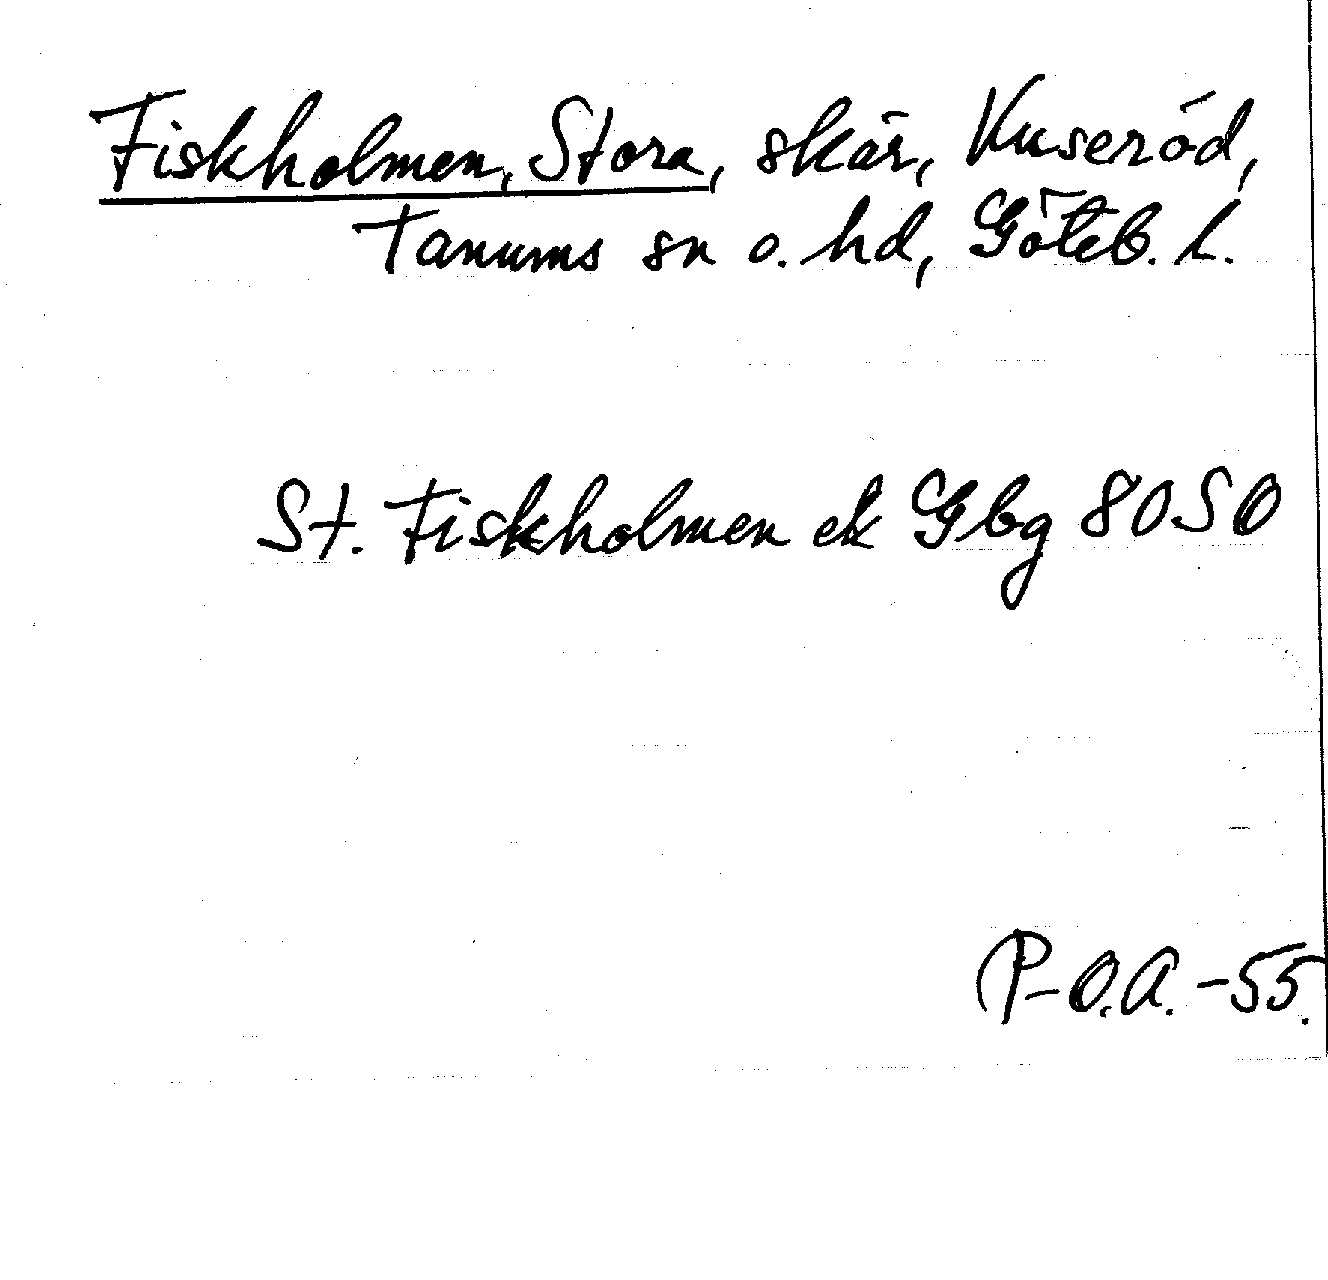 Fiskholmen, Stora, skär, Kuseröd,
Tanums sn o. hd, Göteb. L.
St. Fiskholmen ek Gbg 8050
P-O.A. -55.